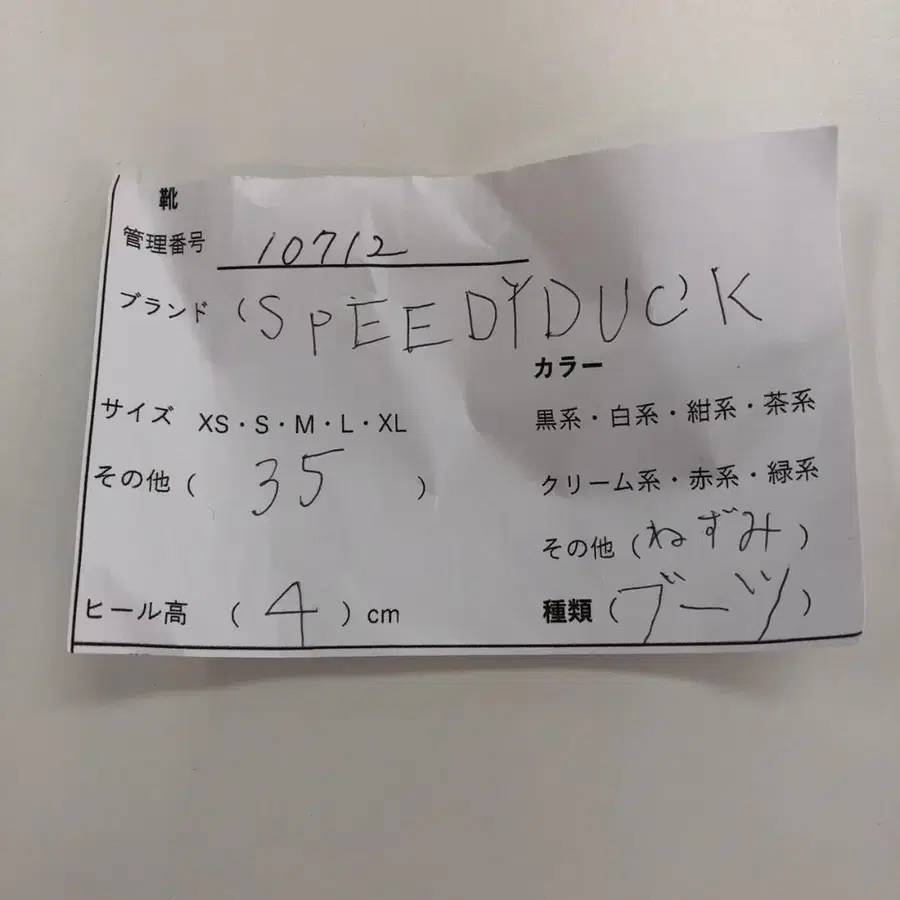 靴
管理番号 10712
ブランド (SPEEDYDUCK
カラー
サイズ XS・S・M・L・XL
黒系・白系・紺系・茶系
その他 ( 35 )
クリーム系・赤系・緑系
その他 (ねずみ)
ヒール高 ( 4 ) cm
種類 (ブーツ)